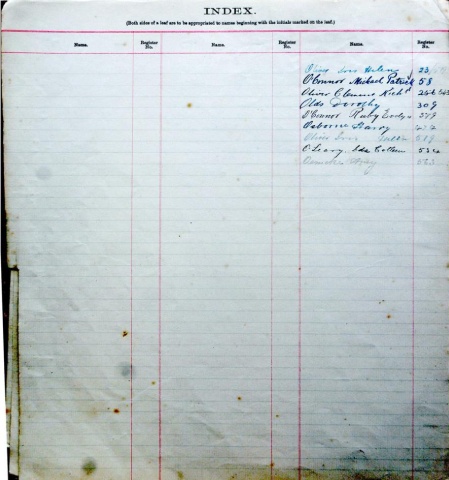 INDEX.
(Both sides of a leaf are to be appropriated to names beginning with the initials marked on the leaf.)
Name. Register No. Name. Register No. Name. Register No.
Helena 23
O'Connor Michael Patrick 58
Oliver Clement Rich^d
Olds Dorothy 309
O'Connor Ruby Evelyn 379
Osborne Harry
Oliver
O'Leary Ida 534